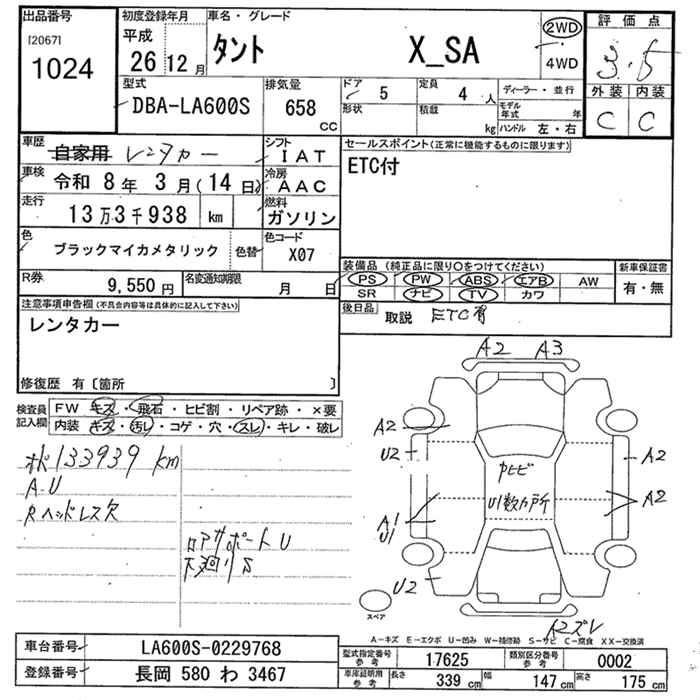 出品番号
[2067]
1024
初度登録年月
平成
26年 12月
車名・グレード
タント X_SA
2WD
4WD
評価点
3.5
外装 内装
C C
型式
DBA-LA600S
排気量
658 cc
ドア 5
形状
定員 4 人
積載 kg
ディーラー・並行
モデル年式 年
ハンドル 左・右
車歴 自家用 レンタカー
シフト IAT
車検 令和 8年 3月(14日)
冷房 AAC
走行 13万3千938 km
燃料 ガソリン
色 ブラックマイカメタリック 色替
色コード X07
R券 9,550円
名変通知期限 月 日
セールスポイント(正常に機能するものに限ります)
ETC付
装備品(純正品に限り○をつけてください)
PS PW ABS エアB AW
SR ナビ TV カワ
新車保証書
有・無
後日品 取説 ETC有
注意事項申告欄(不具合内容等は具体的に記入して下さい)
レンタカー
修復歴 有〔箇所 〕
検査員記入欄
FW キズ・飛石・ヒビ割・リペア跡・×要
内装 キズ・汚レ・コゲ・穴・スレ・キレ・破レ
133939 km
A.U
Rヘッドレス欠
ロアサポートU
下廻りS
A2 A3
A2
U2
A1
U1
U2
A2
A2
中ヒビ
U1数カ所
A2ズレ
スペア
A-キズ E-エクボ U-凹み W-補修跡 S-サビ C-腐食 XX-交換済
車台番号 LA600S-0229768
登録番号 長岡 580 わ 3467
型式指定番号 参考 17625
類別区分番号 参考 0002
車庫証明用 参考 長さ 339 cm 幅 147 cm 高さ 175 cm